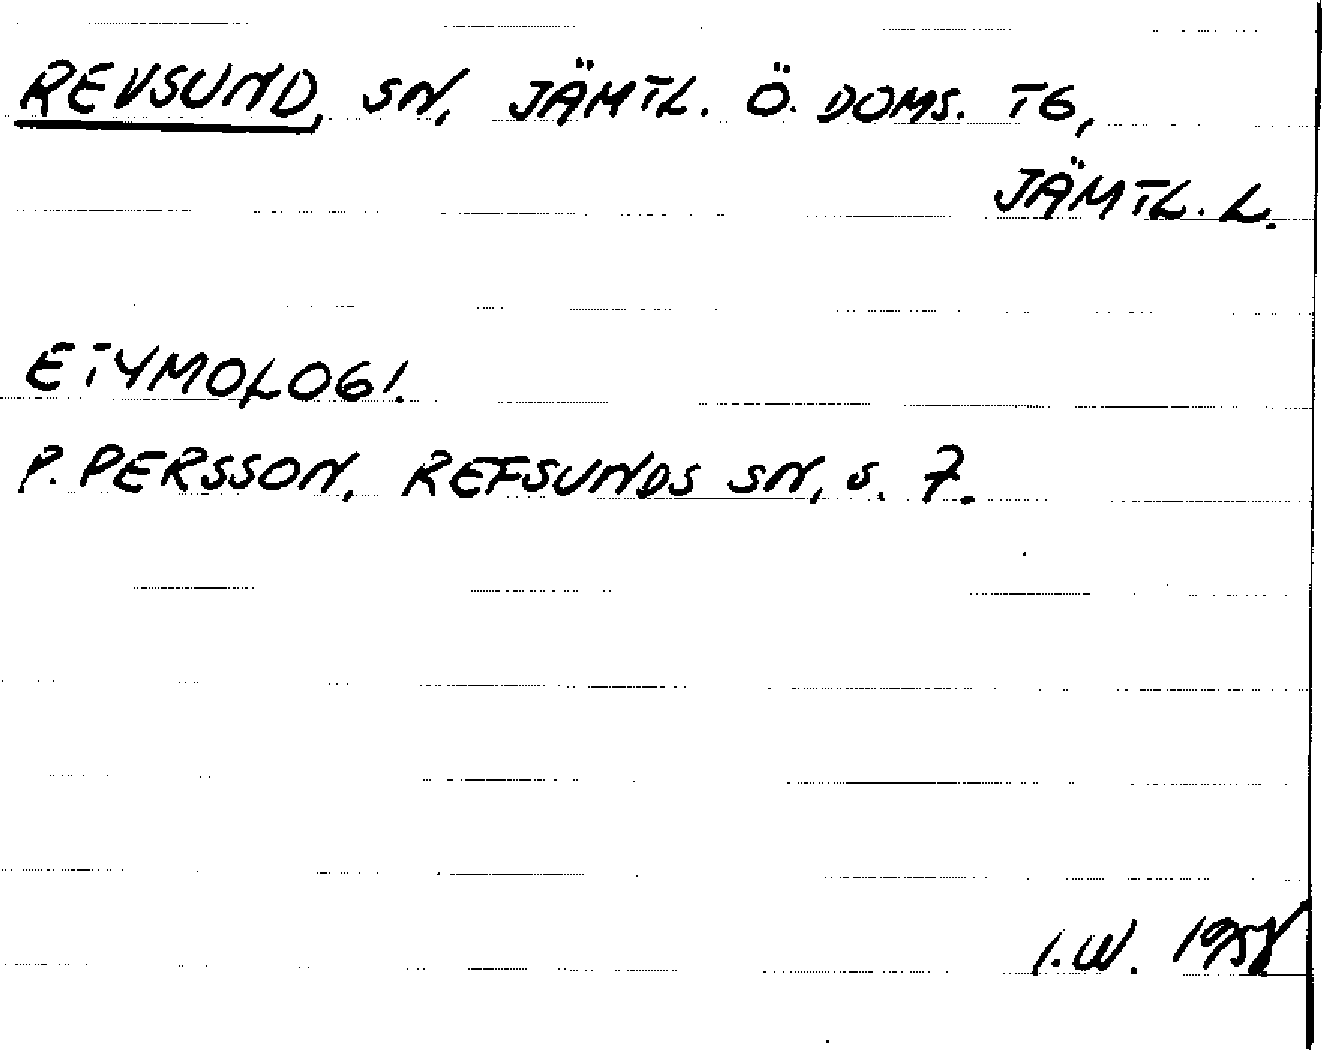 REVSUND, SN, JÄMTL. Ö. DOMS. TG,
JÄMTL. L.
ETYMOLOGI.
P. PERSSON, REFSUNDS SN, S. 7.
I.W. 1958